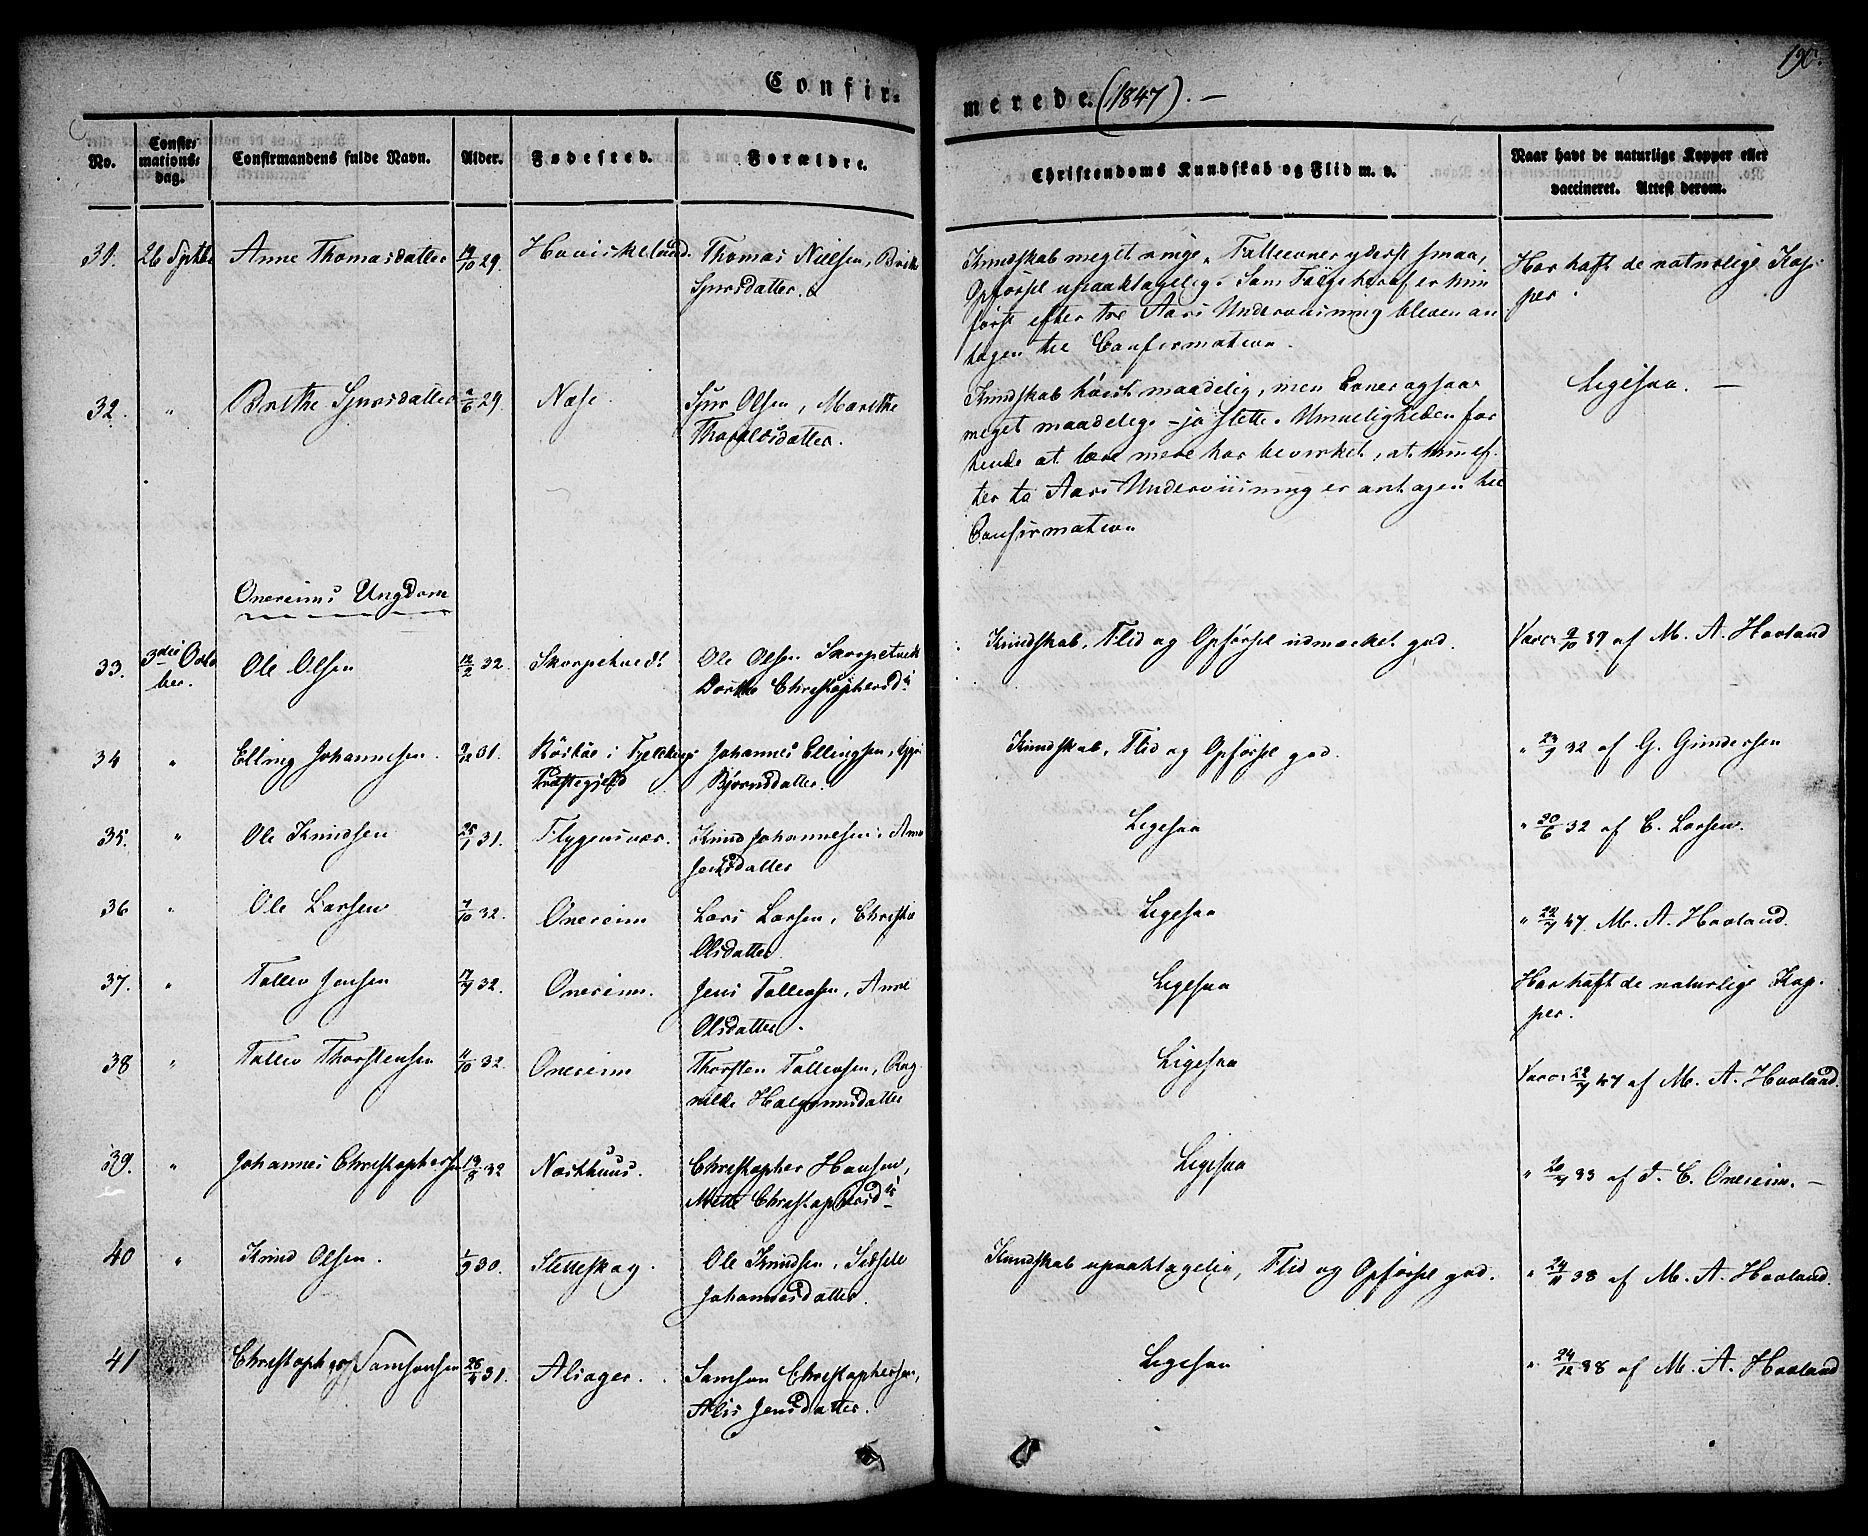 190.
Confir-
merede. (1847). —
No.
Confir-
mations-
dag.
Confirmandens fulde Navn.
Alder.
Fødested.
Forældre.
Christendoms Kundskab og Flid m. v.
Naar havt de naturlige Kopper eller
vaccineret. Attest derom.
31. 26 Septbr Anne Thomasdatter 14/10 29. Thomas Nielsen, Birthe
Sjursdatter.
Kundskab meget ringe, Fatteevner yderst smaa,
Opførsel upaaklagelig. Som Følge heraf er hun
først efter tre Aars Underviisning bleven an
tagen til Confirmation.
Har haft de naturlige Kop-
per.
32. " Birthe Sjursdatter 2/6 29 Næse. Sjur Olsen, Marithe
Thoraldsdatter.
Kundskab høist maadelig, men Evner ogsaa
meget maadelig - ja slette. Umueligheden for
hende at lære mere har bevirket, at hun ef-
ter to Aars Underviisning er antagen til
Confirmation
Ligesaa. —
Onereims Ungdom
33. 3die Octo
ber. Ole Olsen 12/2 32. Skorpetvedt Ole Olsen Skorpetvedt
Dorthe Christophersdr
Kundskab, Flid og Opførsel udmærket god.
Vacc. 9/10 39 af M. A. Havland
34 " Elling Johannesen. 9/12 31. i Fjeldbergs
Præstegjeld Johannes Ellingsen,
Bjørnsdatter.
Kundskab, Flid og Opførsel god.
" 23/9 32 af G. Gundersen
35. " Ole Knudsen 25/1 31. Flygensvær. Knud Johannesen. Anna
Jensdatter
Ligesaa
" 20/6 32 af C. Larsen.
36 " Ole Larsen 7/10 32. Onereim Lars Larsen, Christie
Olsdatter.
Ligesaa
" 22/7 47. M. A. Havland.
37. " Tollev Jensen 17/9 32. Onereim. Jens Tollevsen, Anne
Olsdatter.
Ligesaa
Har haft de naturlige Kop-
per.
38 " Tollev Thorstensen 11/10 32. Onereim Thorsten Tollevsen, Rag
nilde Halgrimsdatter
Ligesaa
Vacc. 22/7 47 af M. A. Havland.
39. " Johannes Christophersen 19/8 32 Northuus. Christopher Hansen,
Mette Christophersdr
Ligesaa
" 20/7 33 af J. C. Onereim. —
40 " Knud Olsen. 1/9 30. Sletteskog. Ole Knudsen, Sidsele
Johannesdatter.
Kundskab upaaklagelig, Flid og Opførsel god.
" 24/11 38 af M. A. Havland.
41 " Christopher Samsonsen 28/4 31. Alsager. Samson Christophersen,
Alis Jensdatter.
Ligesaa
" 24/12 38 af M. A. Havland